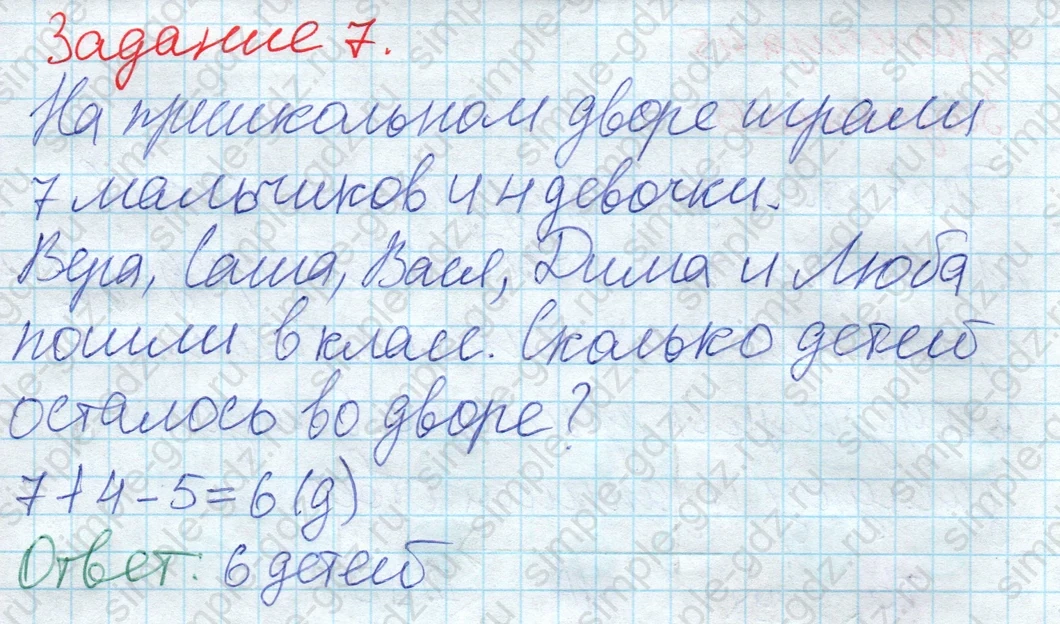 Задание 7.
На пришкольном дворе играли
7 мальчиков и 4 девочки.
Вера, Саша, Вася, Дима и Люба
пошли в класс. Сколько детей
осталось во дворе?
7+4-5=6(д)
Ответ: 6 детей